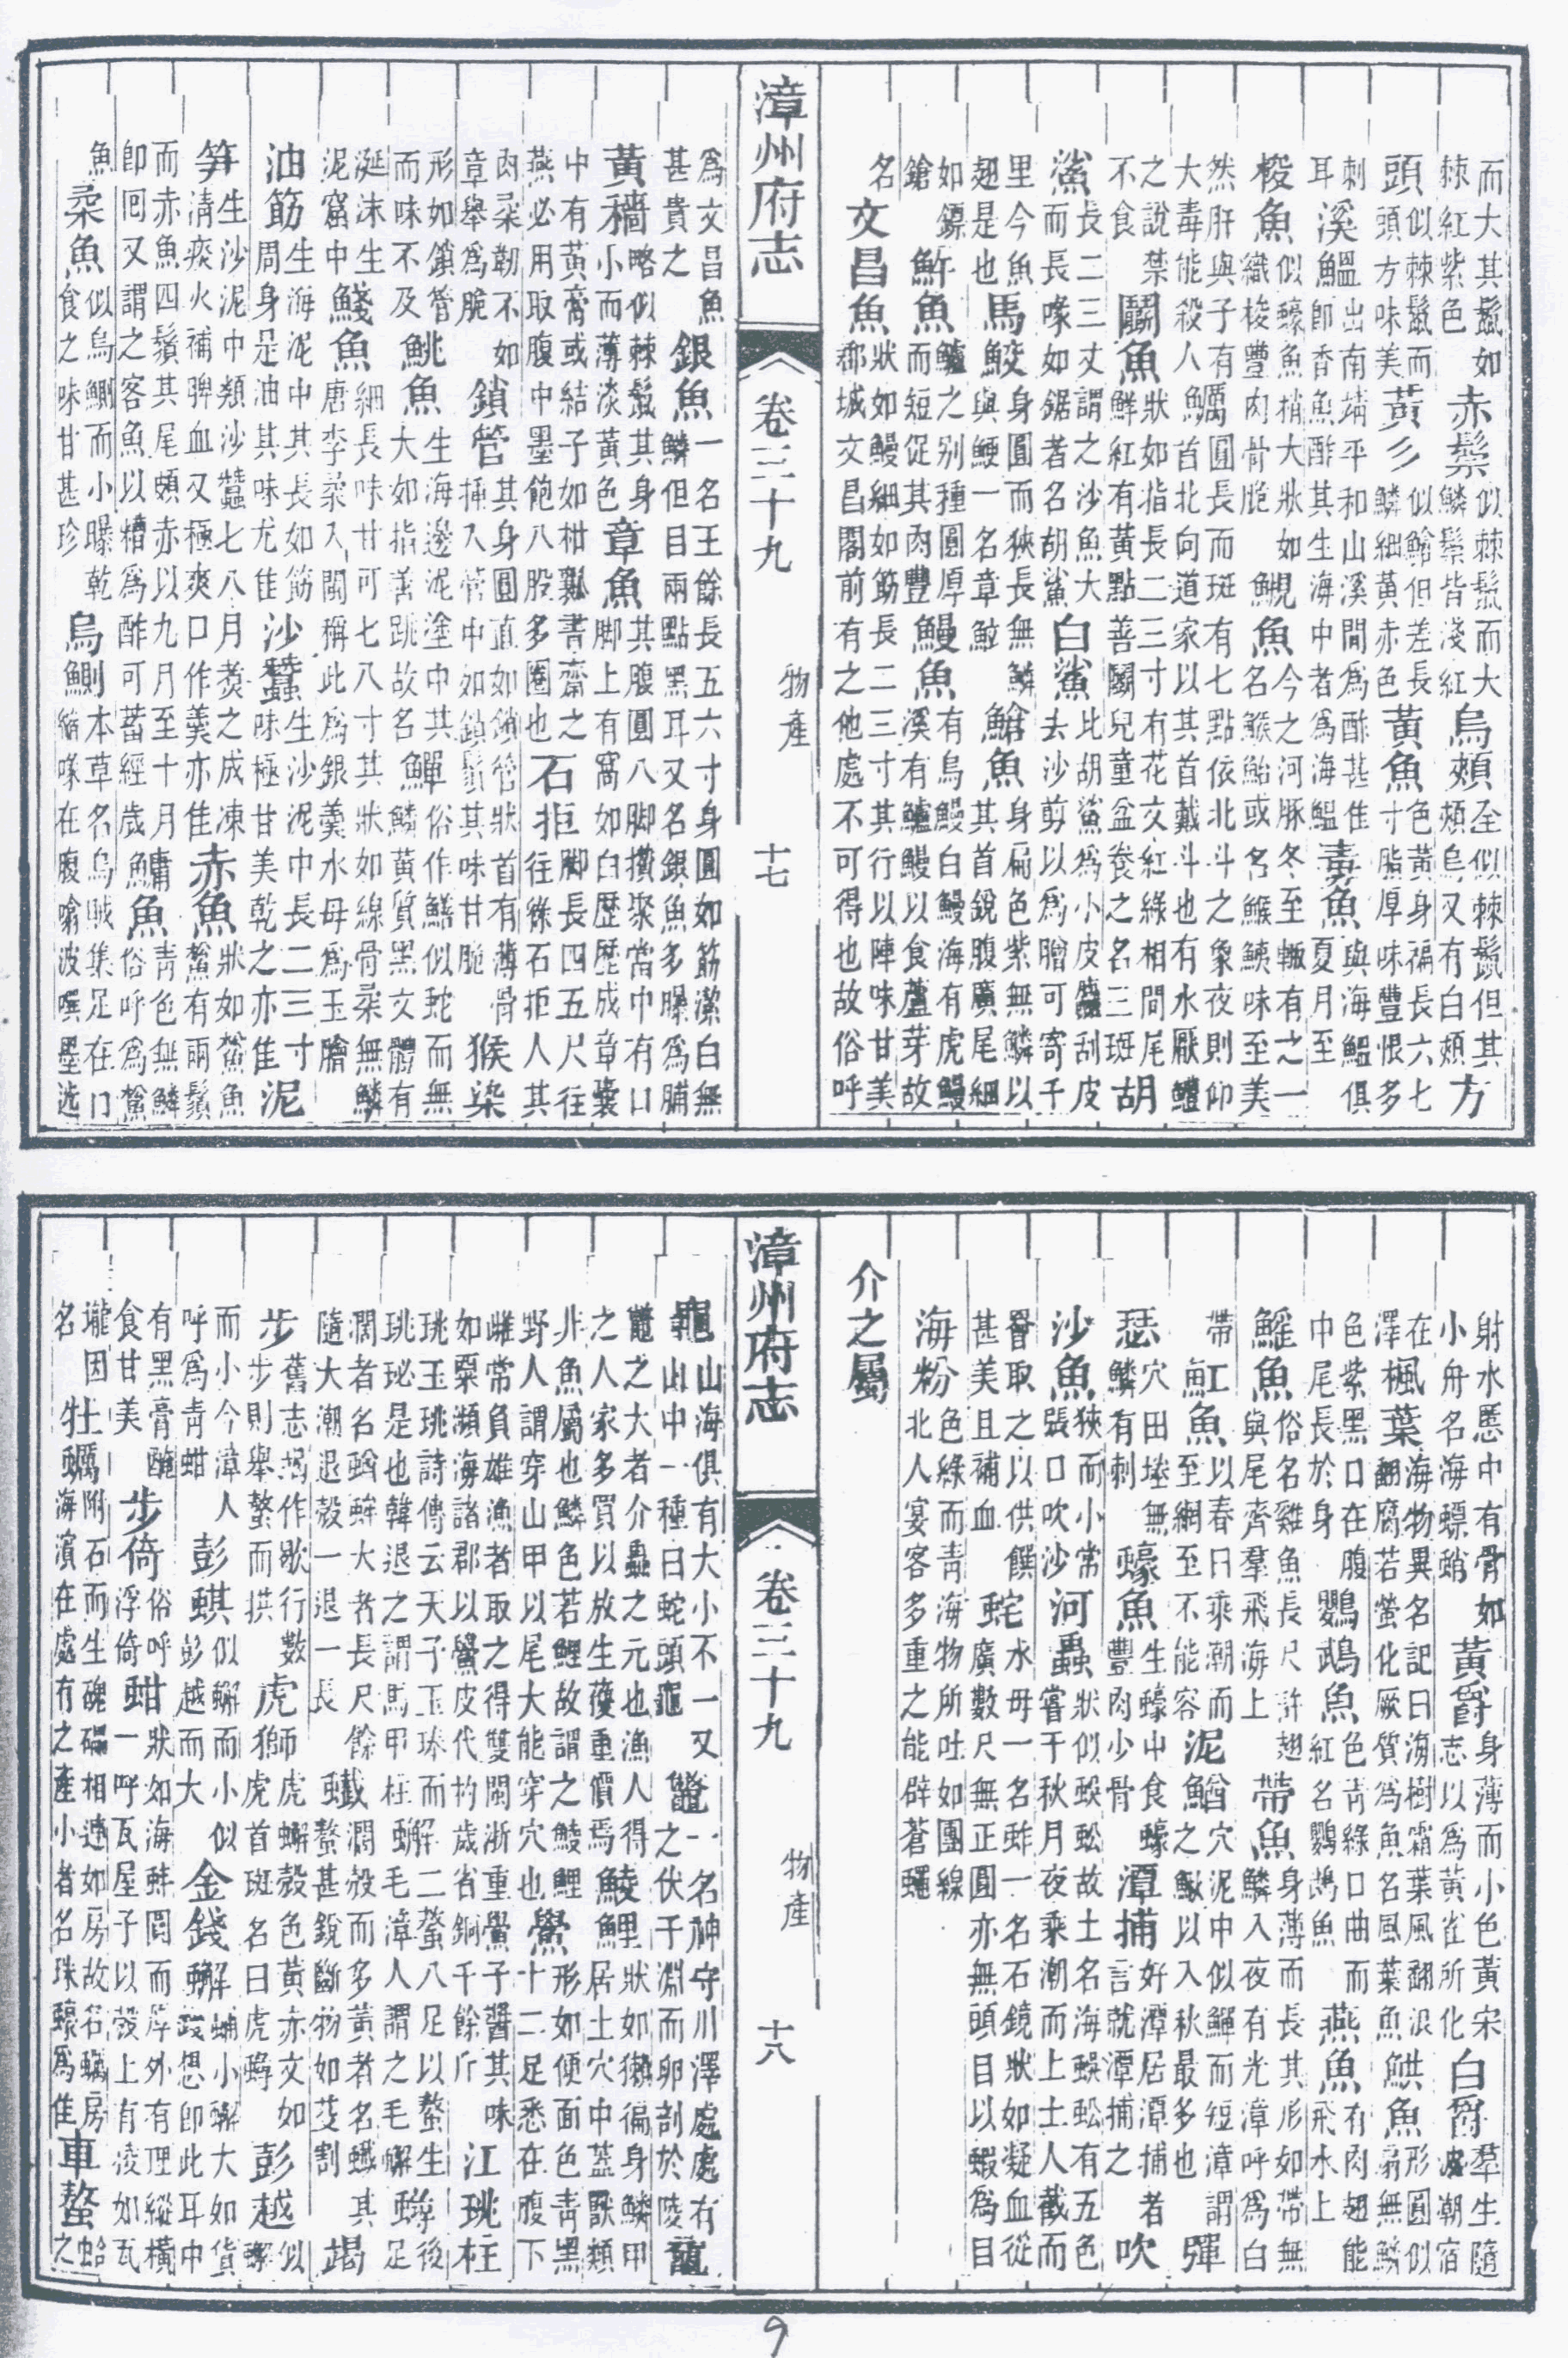 而大其鬣如棘紅紫色 赤鬃 似棘鬣而大鱗鬃皆淺紅 烏頰 全似棘鬣但其頰烏又有白頰 方
頭 似棘鬣而頭方味美 黃彡 似鰪但差長鱗細黃赤色 黃魚 色黃身褊長六七寸脂厚味豐恨多
刺耳 溪鰮 出南靖平和山溪間為酢甚佳即香魚酢其生海中者為海鰮 毒魚 與海鰮俱夏月至
梭魚 似蠔魚梢大狀如織梭豐肉骨脆 䲅魚 今之河豚冬至輙有之一名鯸鮐或名鯸鮧味至美
然肝與子有大毒能殺人 圓長而斑有七點依北斗之象夜則仰首北向道家以其首戴斗也有水厭鱧
之說禁不食 鬭魚 狀如指長二三寸有花文紅綠相間尾鮮紅有黃點善鬭兒童盆養之名三斑 胡
鯊 長二三丈謂之沙魚大而長喙如鋸者名胡鯊 白鯊 比胡鯊為小皮刮皮去沙剪以為膾可寄千
里今魚翅是也 馬鮫 身圓而狹長無鱗與鯁一名章 鱠魚 身扁色紫無鱗以其首銳腹廣尾細
如鏢鎗 魣魚 鱸之別種圓厚而短促其肉豐 鰻魚 有烏鰻白鰻海有虎鰻溪有鱸鰻以食蘆芽故
名 文昌魚 狀如鰻細如筋長二三寸其行以陣味甘美郡城文昌閣前有之他處不可得也故俗呼
漳州府志 卷三十九 物產 十七
為文昌魚甚貴之 銀魚 一名王餘長五六寸身圓如筋潔白無鱗但目兩點黑耳又名銀魚多曝為脯
黃穡 略似棘鬣其身小而薄淡黃色 章魚 其腹圓八脚攢聚當中有口脚上有窩如臼歷歷成章囊
中有黃膏或結子如柑瓤書齋之燕必用取腹中墨飽八股多圈也 石拒 脚長四五尺往往絲石拒人其
肉柔韌不如章舉為脆 鎖管 其身圓直如鎖管狀首有薄骨插入管中如鎖鬚其味甘脆 猴染
形如鎖管而味不及 鮡魚 生海邊泥塗中其大如指善跳故名 鱓 俗作鱔似蛇而無鱗黃質黑文體有
涎沫生泥窟中 鯼魚 細長味甘可七八寸其狀如線骨柔無鱗唐李柔入閩稱此為銀羹水母為玉膾
油筯 生海泥中其長如筯周身是油其味尤佳 沙蠶 生沙泥中長二三寸味極甘美乾之亦佳 泥
笋 生沙泥中類沙蠶七八月煑之成凍清痰火補脾血又極爽口作羹亦佳 赤魚 狀如鯊魚有兩鬚
而赤魚四鬚其尾頗赤以九月至十月即回又謂之客魚以糟為酢可蓄經歲 鱅魚 青色無鱗俗呼為鯊
魚 柔魚 似烏鰂而小曝乾食之味甘甚珍 烏鰂 本草名烏賊集足在口縮喙在腹嗡波噀墨迷
射水慝中有骨如小舟名海螵蛸 黃爵 身薄而小色黃宋志以為黃雀所化 白爵 羣生隨波朝宿
在澤 楓葉 海物異名記曰海樹霜葉風翻浪翻腐若螢化厥質為魚名鳳葉魚 魟魚 形圓似扇無鱗
色紫黑口在腹中尾長於身 鸚鵡魚 色青綠口曲而紅名鸚鵡魚 燕魚 有肉翅能飛水上
鰩魚 俗名雞魚長尺許翅與尾齊羣飛海上 帶魚 身薄而長其形如帶無鱗入夜有光漳呼為白
帶 魟魚 以春日乘潮而至網至不能容 泥鰌 穴泥中似鱓而短漳謂之鰍以入秋最多也 彈
瑟 穴田塍無鱗有刺 蠔魚 生蠔中食蠔豐肉少骨 潭捕 好潭居潭捕者言就潭捕之 吹
沙魚 狹而小常張口吹沙 河蟲 狀似蜈蚣故土名海蜈蚣有五色嘗于秋月夜乘潮而上士人截而
取之以供饌甚美且補血 蛇 水母一名鮓一名石鏡狀如凝血從廣數尺無正圓亦無頭目以蝦為目
海粉 色綠而青海物所吐如團線北人宴客多重之能辟蒼蠅
介之屬
漳州府志 卷三十九 物產 十八
龜 山海俱有大小不一又山中一種曰蛇頭龜 鼈 一名神守川澤處處有之伏于淵而卵剖於陵 黿
鼈之大者介蟲之元也漁人得之人家多買以放生獲重價焉 鯪鯉 狀如獺徧身鱗甲居土穴中蓋獸類
非魚屬也鱗色若鯉故謂之鯪鯉野人謂穿山甲以尾大能穿穴也 鱟 形如便面色青黑十二足悉在腹下
雌常負雄漁者取之得雙閩浙重鱟子醬其味如粟瀕海諸郡以鱟皮代杓歲省銅千餘斤 江珧柱
珧玉珧詩傳云天子玉琫而珧珌是也韓退之謂馬甲柱 蠏 二螯八足以螯生後毛漳人謂之毛蠏 蝤 足
濶者名蝤蛑大者長尺餘隨大潮退殼一退一長 蠘 濶殼而多黃者名蠘其螯甚銳斷物如芟割 蝎
步 舊志作歇行數步則舉螯而拱 虎獅 虎蠏殼色黃赤文如虎首斑名曰虎蟳 彭越 似蠏
而小今漳人呼為青蚶 彭蜞 似蠏而小似彭越而大 金錢蠏 小蠏大如貨想即此耳中
有黑膏醃食甘美 步倚 俗呼浮倚 蚶 狀如海蛤圓而厚外有理縱橫一呼瓦屋子以殼上有凌如瓦
瓏因名 牡蠣 附石而生磈礧相連如房故名蠣房海濱在處有之產小者名珠蠔為佳 車螯 蛤之
9